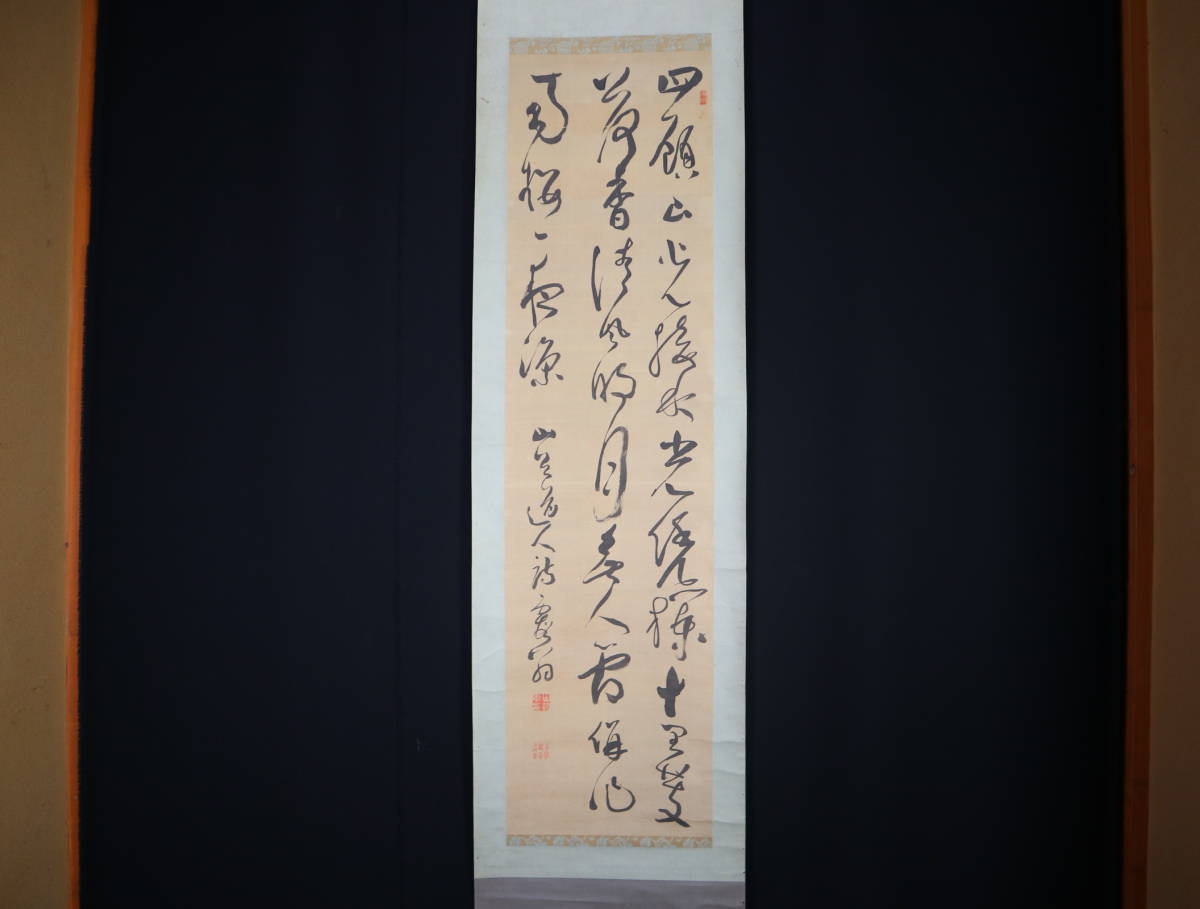 四顧山光接水光凭欄十里芰
荷香清風明月無人管併作
南樓一夜涼 山谷道人詩 翁